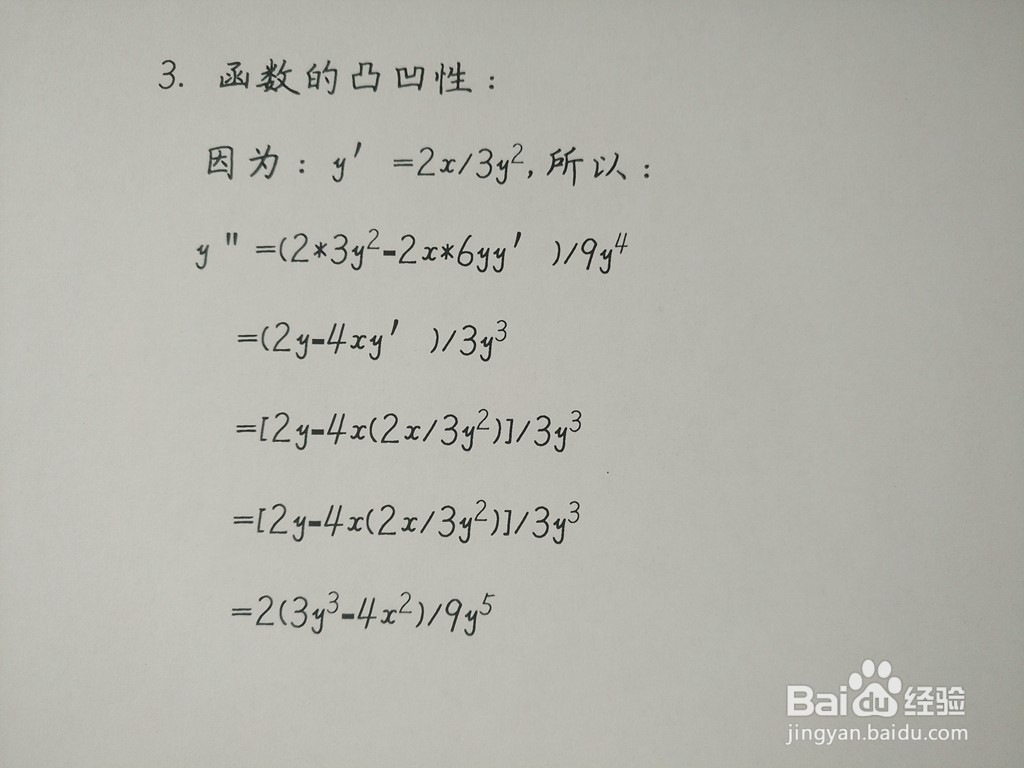 3. 函数的凸凹性：
因为：y′ =2x/3y²,所以：
y"=(2*3y²-2x*6yy′ )/9y⁴
=(2y-4xy′ )/3y³
=[2y-4x(2x/3y²)]/3y³
=[2y-4x(2x/3y²)]/3y³
=2(3y³-4x²)/9y⁵
Bai du 经验
jingyan.baidu.com